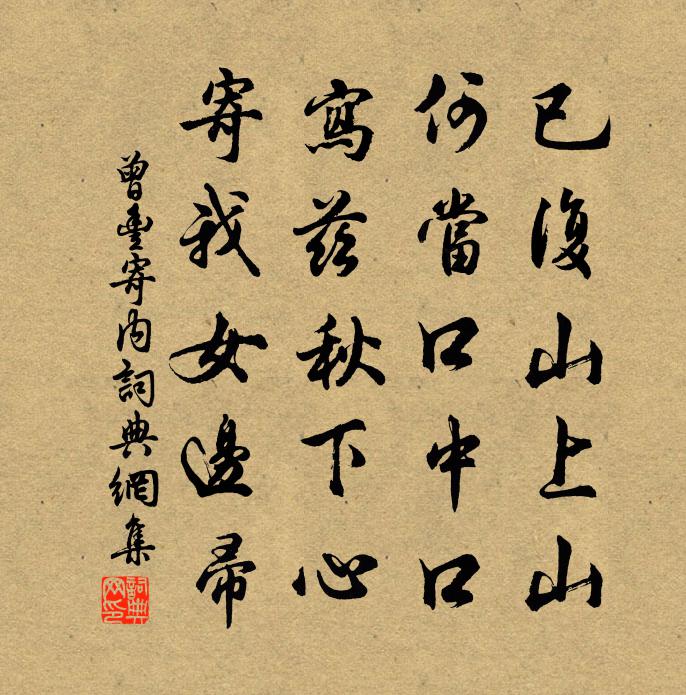 已復山上山
何當口中口
寫茲秋下心
寄我女邊帚
曾豐寄內詞典網集
詞典網印